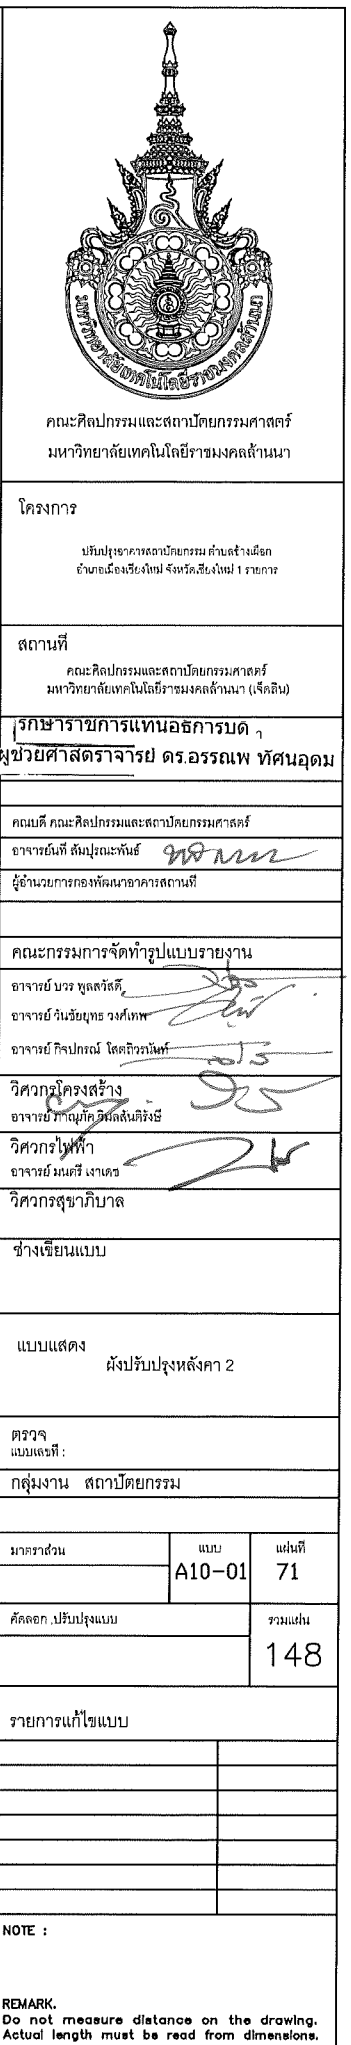 มหาวิทยาลัยเทคโนโลยีราชมงคลล้านนา
คณะศิลปกรรมและสถาปัตยกรรมศาสตร์
มหาวิทยาลัยเทคโนโลยีราชมงคลล้านนา
โครงการ
ปรับปรุงอาคารสถาปัตยกรรม ตำบลช้างเผือก
อำเภอเมืองเชียงใหม่ จังหวัดเชียงใหม่ 1 รายการ
สถานที่
คณะศิลปกรรมและสถาปัตยกรรมศาสตร์
มหาวิทยาลัยเทคโนโลยีราชมงคลล้านนา (เจ็ดลิน)
รักษาราชการแทนอธิการบดี
ผู้ช่วยศาสตราจารย์ ดร.อรรณพ ทัศนอุดม
คณบดี คณะศิลปกรรมและสถาปัตยกรรมศาสตร์
อาจารย์นที สัมปุรณะพันธ์
ผู้อำนวยการกองพัฒนาอาคารสถานที่
คณะกรรมการจัดทำรูปแบบรายงาน
อาจารย์ บวร พูลสวัสดิ์
อาจารย์ วันชัยยุทธ วงศ์เทพ
อาจารย์ กิจปกรณ์ โสตถิวรนันท์
วิศวกรโครงสร้าง
อาจารย์ ภาณุภัค วิมลสันติรังษี
วิศวกรไฟฟ้า
อาจารย์ มนตรี เงาเดช
วิศวกรสุขาภิบาล
ช่างเขียนแบบ
แบบแสดง
ผังปรับปรุงหลังคา 2
ตรวจ
แบบเลขที่ :
กลุ่มงาน สถาปัตยกรรม
มาตราส่วน แบบ แผ่นที่
A10-01 71
คัดลอก ,ปรับปรุงแบบ รวมแผ่น
148
รายการแก้ไขแบบ
NOTE :
REMARK.
Do not measure distance on the drawing.
Actual length must be read from dimensions.